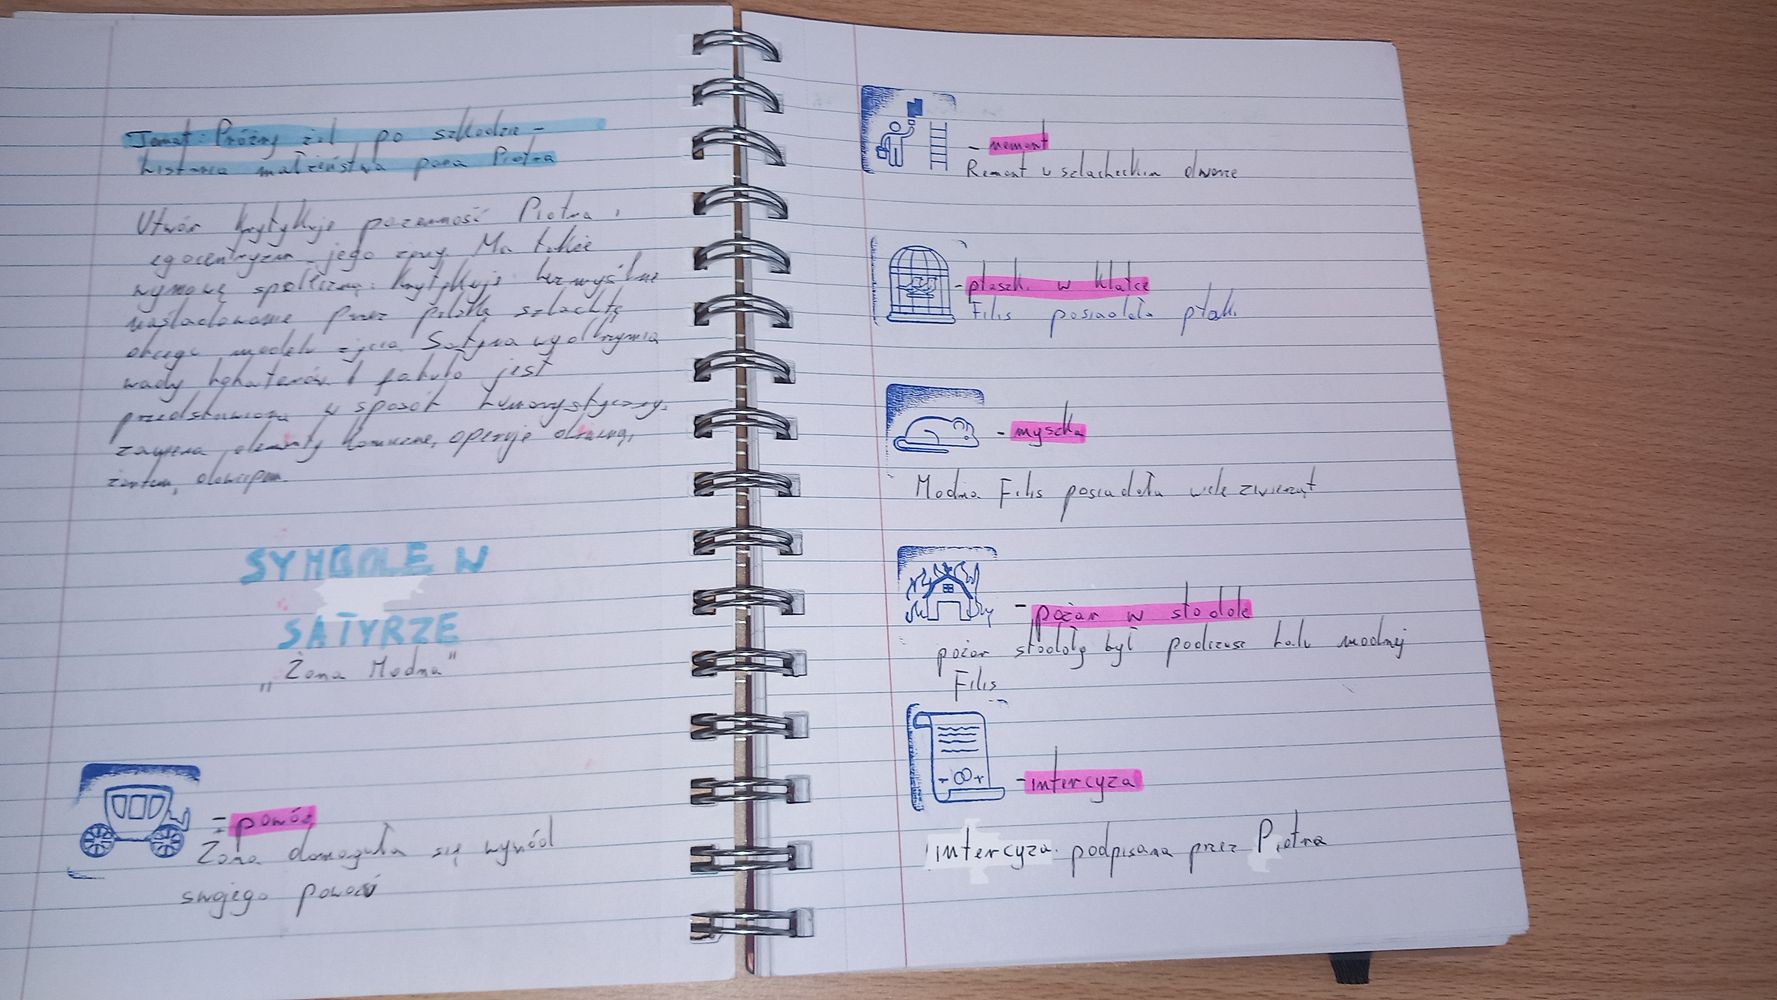 Temat: Próżny żal po szkodzie -
historia małżeństwa pana Piotra
Utwór krytykuje pazerność Piotra i
egocentryzm jego żony. Ma także
wymowę społeczną: krytykuje bezmyślne
naśladowanie przez polską szlachtę
obcego modelu życia. Satyra wyolbrzymia
wady bohaterów i fabuła jest
przedstawiona w sposób humorystyczny,
zawiera elementy komiczne, operuje
żartem, dowcipem.
SYMBOLE W
SATYRZE
"Żona Modna"
- powóz
Żona domagała się wygód
swojego powozu
- remont
Remont w szlacheckim dworze
- ptaszki w klatce
Filis posiadała ptaki
- myszka
Modna Filis posiadała wiele zwierząt
- pożar w stodole
pożar stodoły był podczas balu modnej
Filis
- intercyza
intercyza podpisana przez Piotra